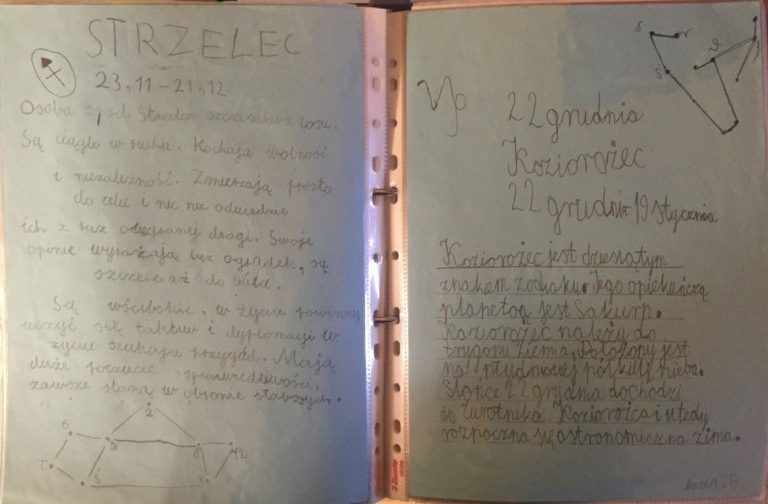 STRZELEC
23,11-21,12
Osoba spod Strzelca szczęściarz losu.
Są ciągle w ruchu. Kochają wolność
i niezależność. Zmierzają prosto
do celu i nic nie odwiedzie
ich z raz obranej drogi. Swoje
opinie wyrażają bez ogródek, są
szczerzi aż do bólu.
Są wścibskie, w życiu powinny
uczyć się taktu i dyplomacji w
życiu szukają przygód. Mają
duże poczucie sprawiedliwości,
zawsze staną w obronie słabszych.
22 grudnia
Koziorożec
22 grudni-19 stycznia
Koziorożec jest dziesiątym
znakiem zodiaku. jego opiekuńczą
planetoą jest Saturn.
Koziorożec należy do
trygonu ziemia. Położony jest
na płudniowej półkuli nieba.
Słońce 22 grudnia dochodzi
do zwrotnika Koziorożca i wtedy
rozpoczna się astronomiczna zima.